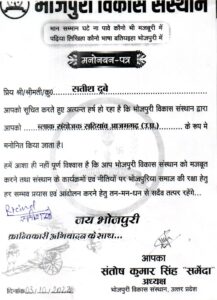 भोजपुरी विकास संस्थान
मान सम्मान घटे ना पावे कौनो भी मजबूरी में
पढ़िया लिखिहा कौनो भाषा बतियइहा भोजपुरी में
मनोनयन-पत्र
प्रिय श्री/श्रीमती/कु0 सतीश दुबे
आपको सूचित करते हुए अत्यन्त हर्ष हो रहा है कि भोजपुरी विकास संस्थान द्वारा
आपको ब्लाक संयोजक सठियांव आजमगढ़ (उ.प्र.) के रूप में
मनोनित किया जाता है।
हमें आशा ही नही पूर्ण विश्वास है कि आप भोजपुरी विकास संस्थान को मजबूत
करने तथा संस्थान के कार्यक्रमों एवं नीतियों पर भोजपुरिया समाज की रक्षा हेतु
हर सम्भव प्रयास एवं आन्दोलन करने हेतु तन-मन-धन से सदैव तत्पर रहेंगे...
Recived
जय भोजपुरी
क्रान्तिकारी अभिवादन के साथ...
आपका
संतोष कुमार सिंह "सगेंदा"
अध्यक्ष
दिनांक 03/10/2022
भोजपुरी विकास संस्थान, उत्तर प्रदेश